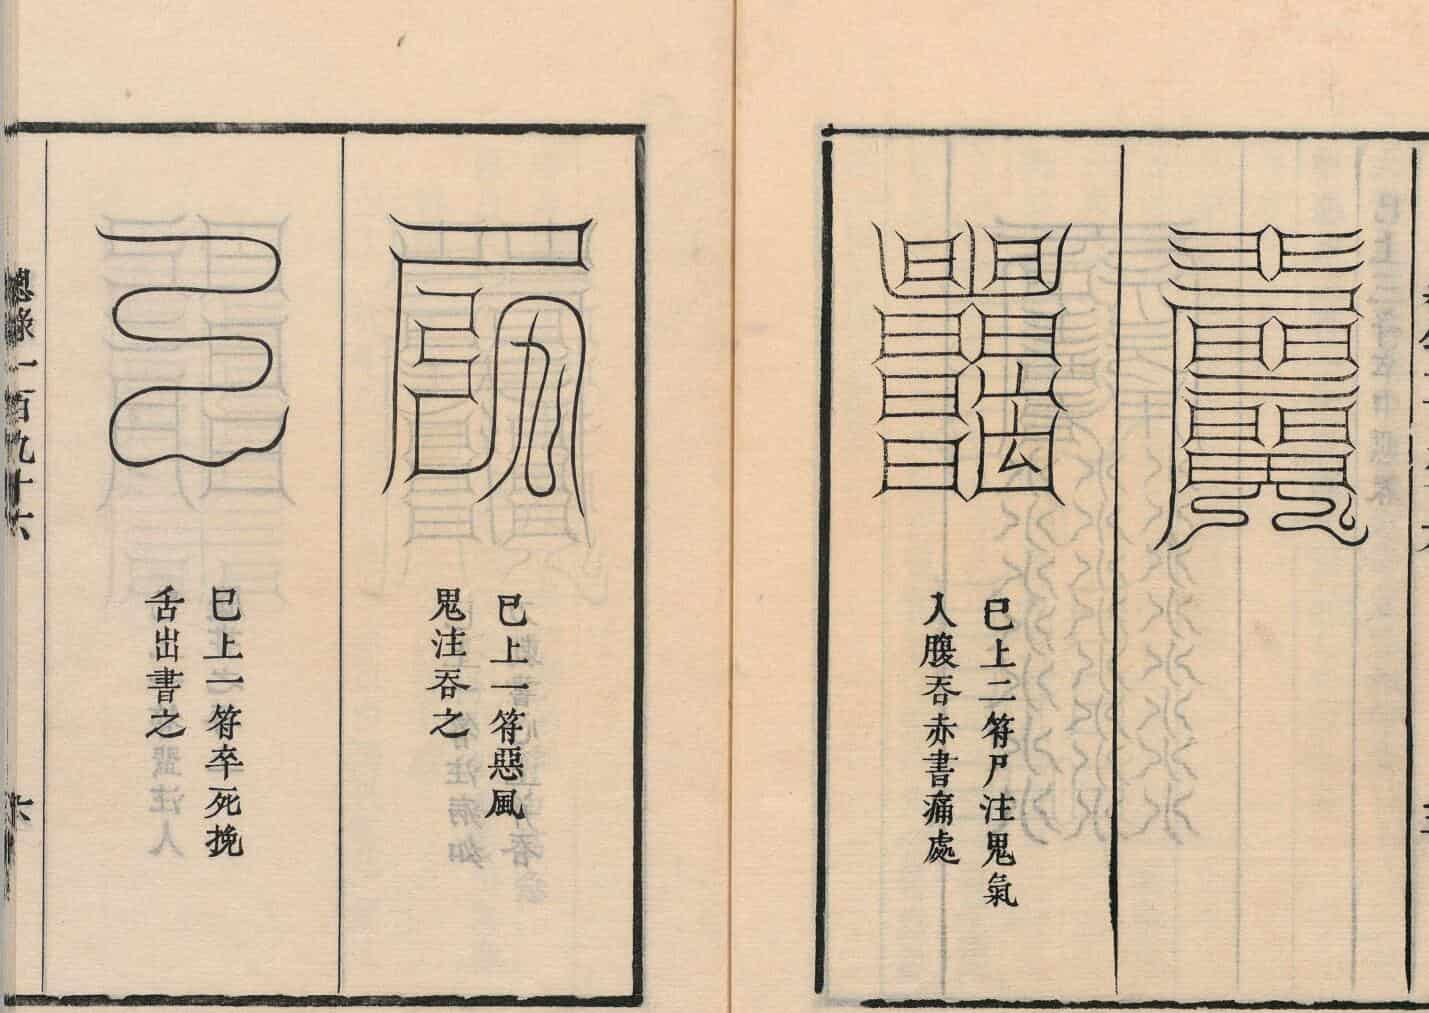 已上二符尸注鬼氣
入腹吞赤書痛處
已上一符惡風
鬼注吞之
已上一符卒死挽
舌出書之
總錄一百九十六
六